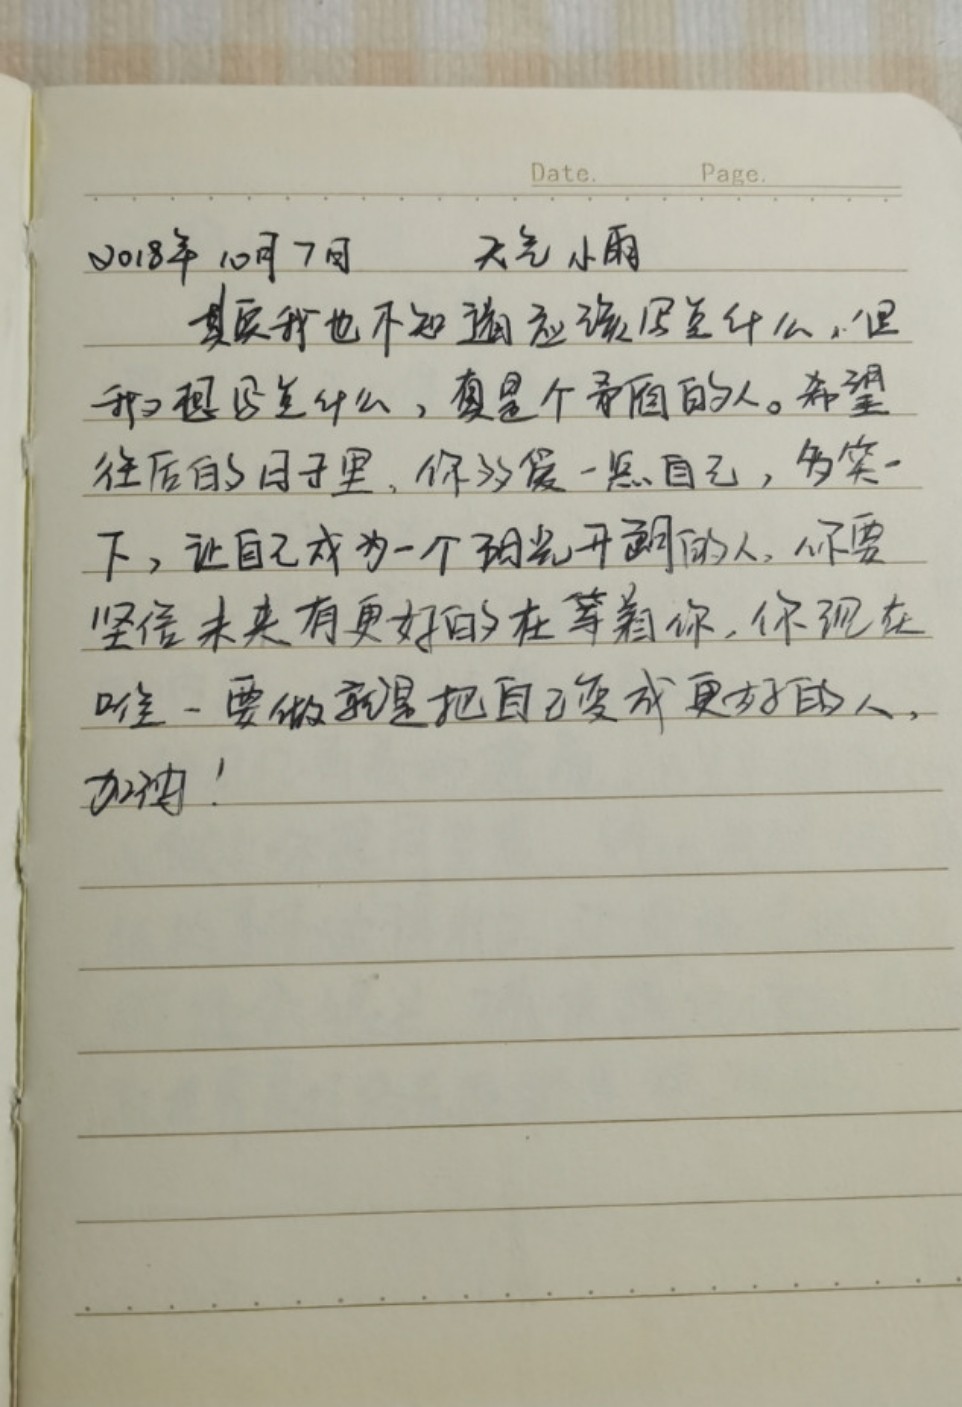 Date. Page.
2018年10月7日 天气 小雨
其实我也不知道应该写点什么，但
我又想写点什么，真是个矛盾的人。希望
往后的日子里，你多爱一点自己，多笑一
下，让自己成为一个阳光开朗的人，你要
坚信未来有更好的在等着你，你现在
唯一要做就是把自己变成更好的人，
加油！